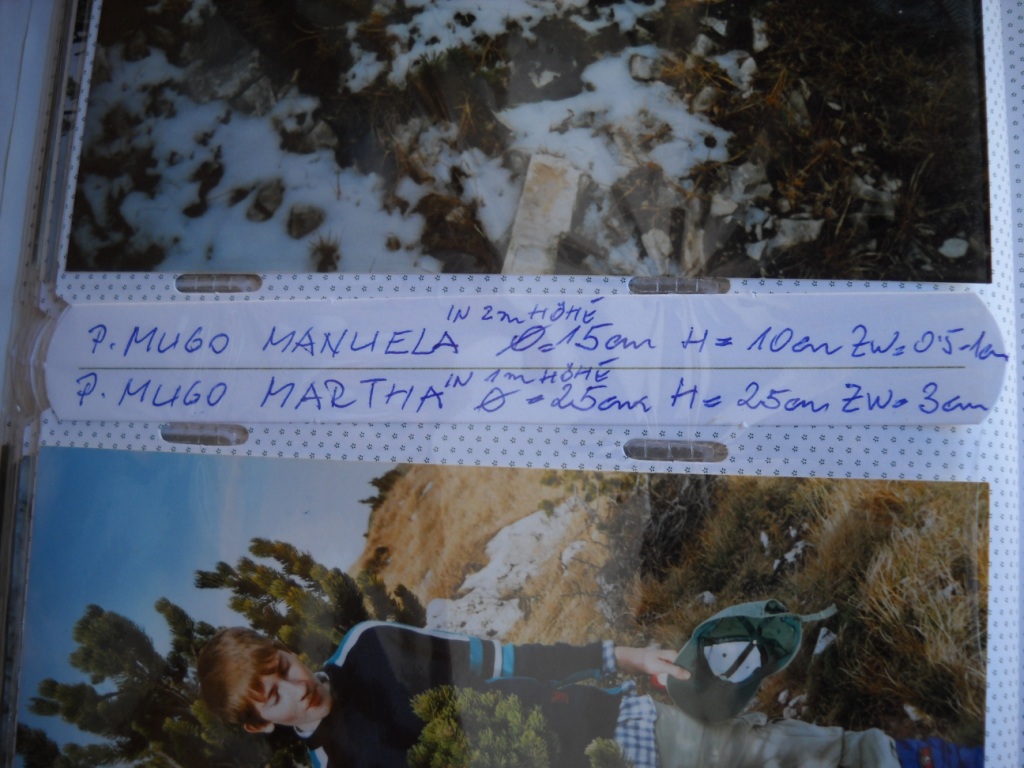 IN 2m HÖHE
P. MUGO MANUELA Ø=15cm H=10cm ZW=0'5-1cm
IN 1m HÖHE
P. MUGO MARTHA Ø=25cm H=25cm ZW=3cm